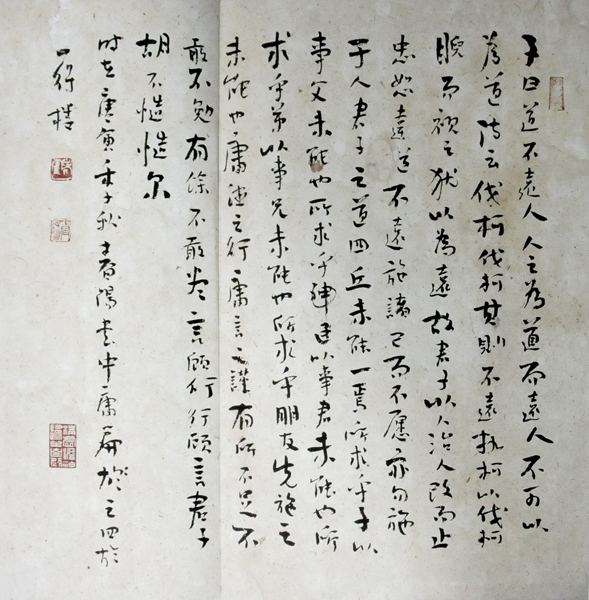 子曰道不遠人人之為道而遠人不可以
為道詩云伐柯伐柯其則不遠執柯以伐柯
睨而視之猶以為遠故君子以人治人改而止
忠恕違道不遠施諸己而不愿亦勿施
于人君子之道四丘未能一焉所求乎子以
事父未能也所求乎臣以事君未能也所
求乎弟以事兄未能也所求乎朋友先施之
未能也庸德之行庸言之謹有所不足不
敢不勉有餘不敢盡言顧行行顧言君子
胡不慥慥尔
時在庚寅年子秋 陽書中庸篇 之四於